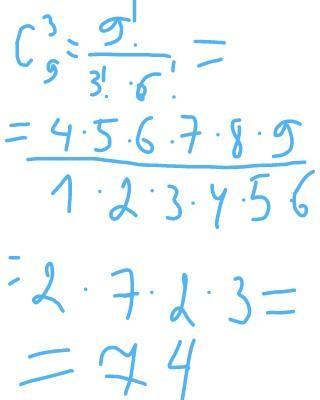 C₉³ = 9! / (3! · 6!) =
= 4·5·6·7·8·9 / 1·2·3·4·5 6
= 2 · 7 · 2 · 3 =
= 74